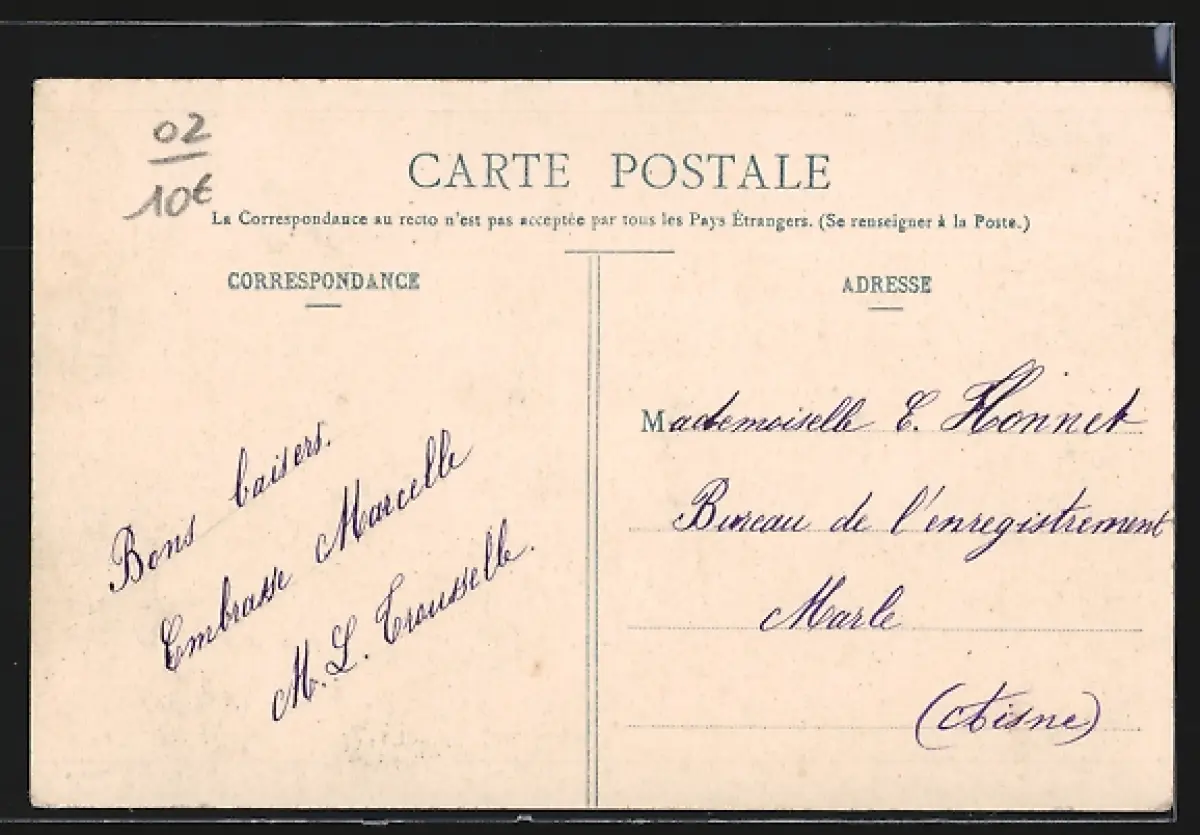 02
10€
CARTE POSTALE
La Correspondance au recto n'est pas acceptée par tous les Pays Étrangers. (Se renseigner à la Poste.)
CORRESPONDANCE
Bons baisers.
Embrasse Marcelle
M. L. Trousselle.
ADRESSE
Mademoiselle E. Honnet
Bureau de l'enregistrement
Marle
(Aisne)